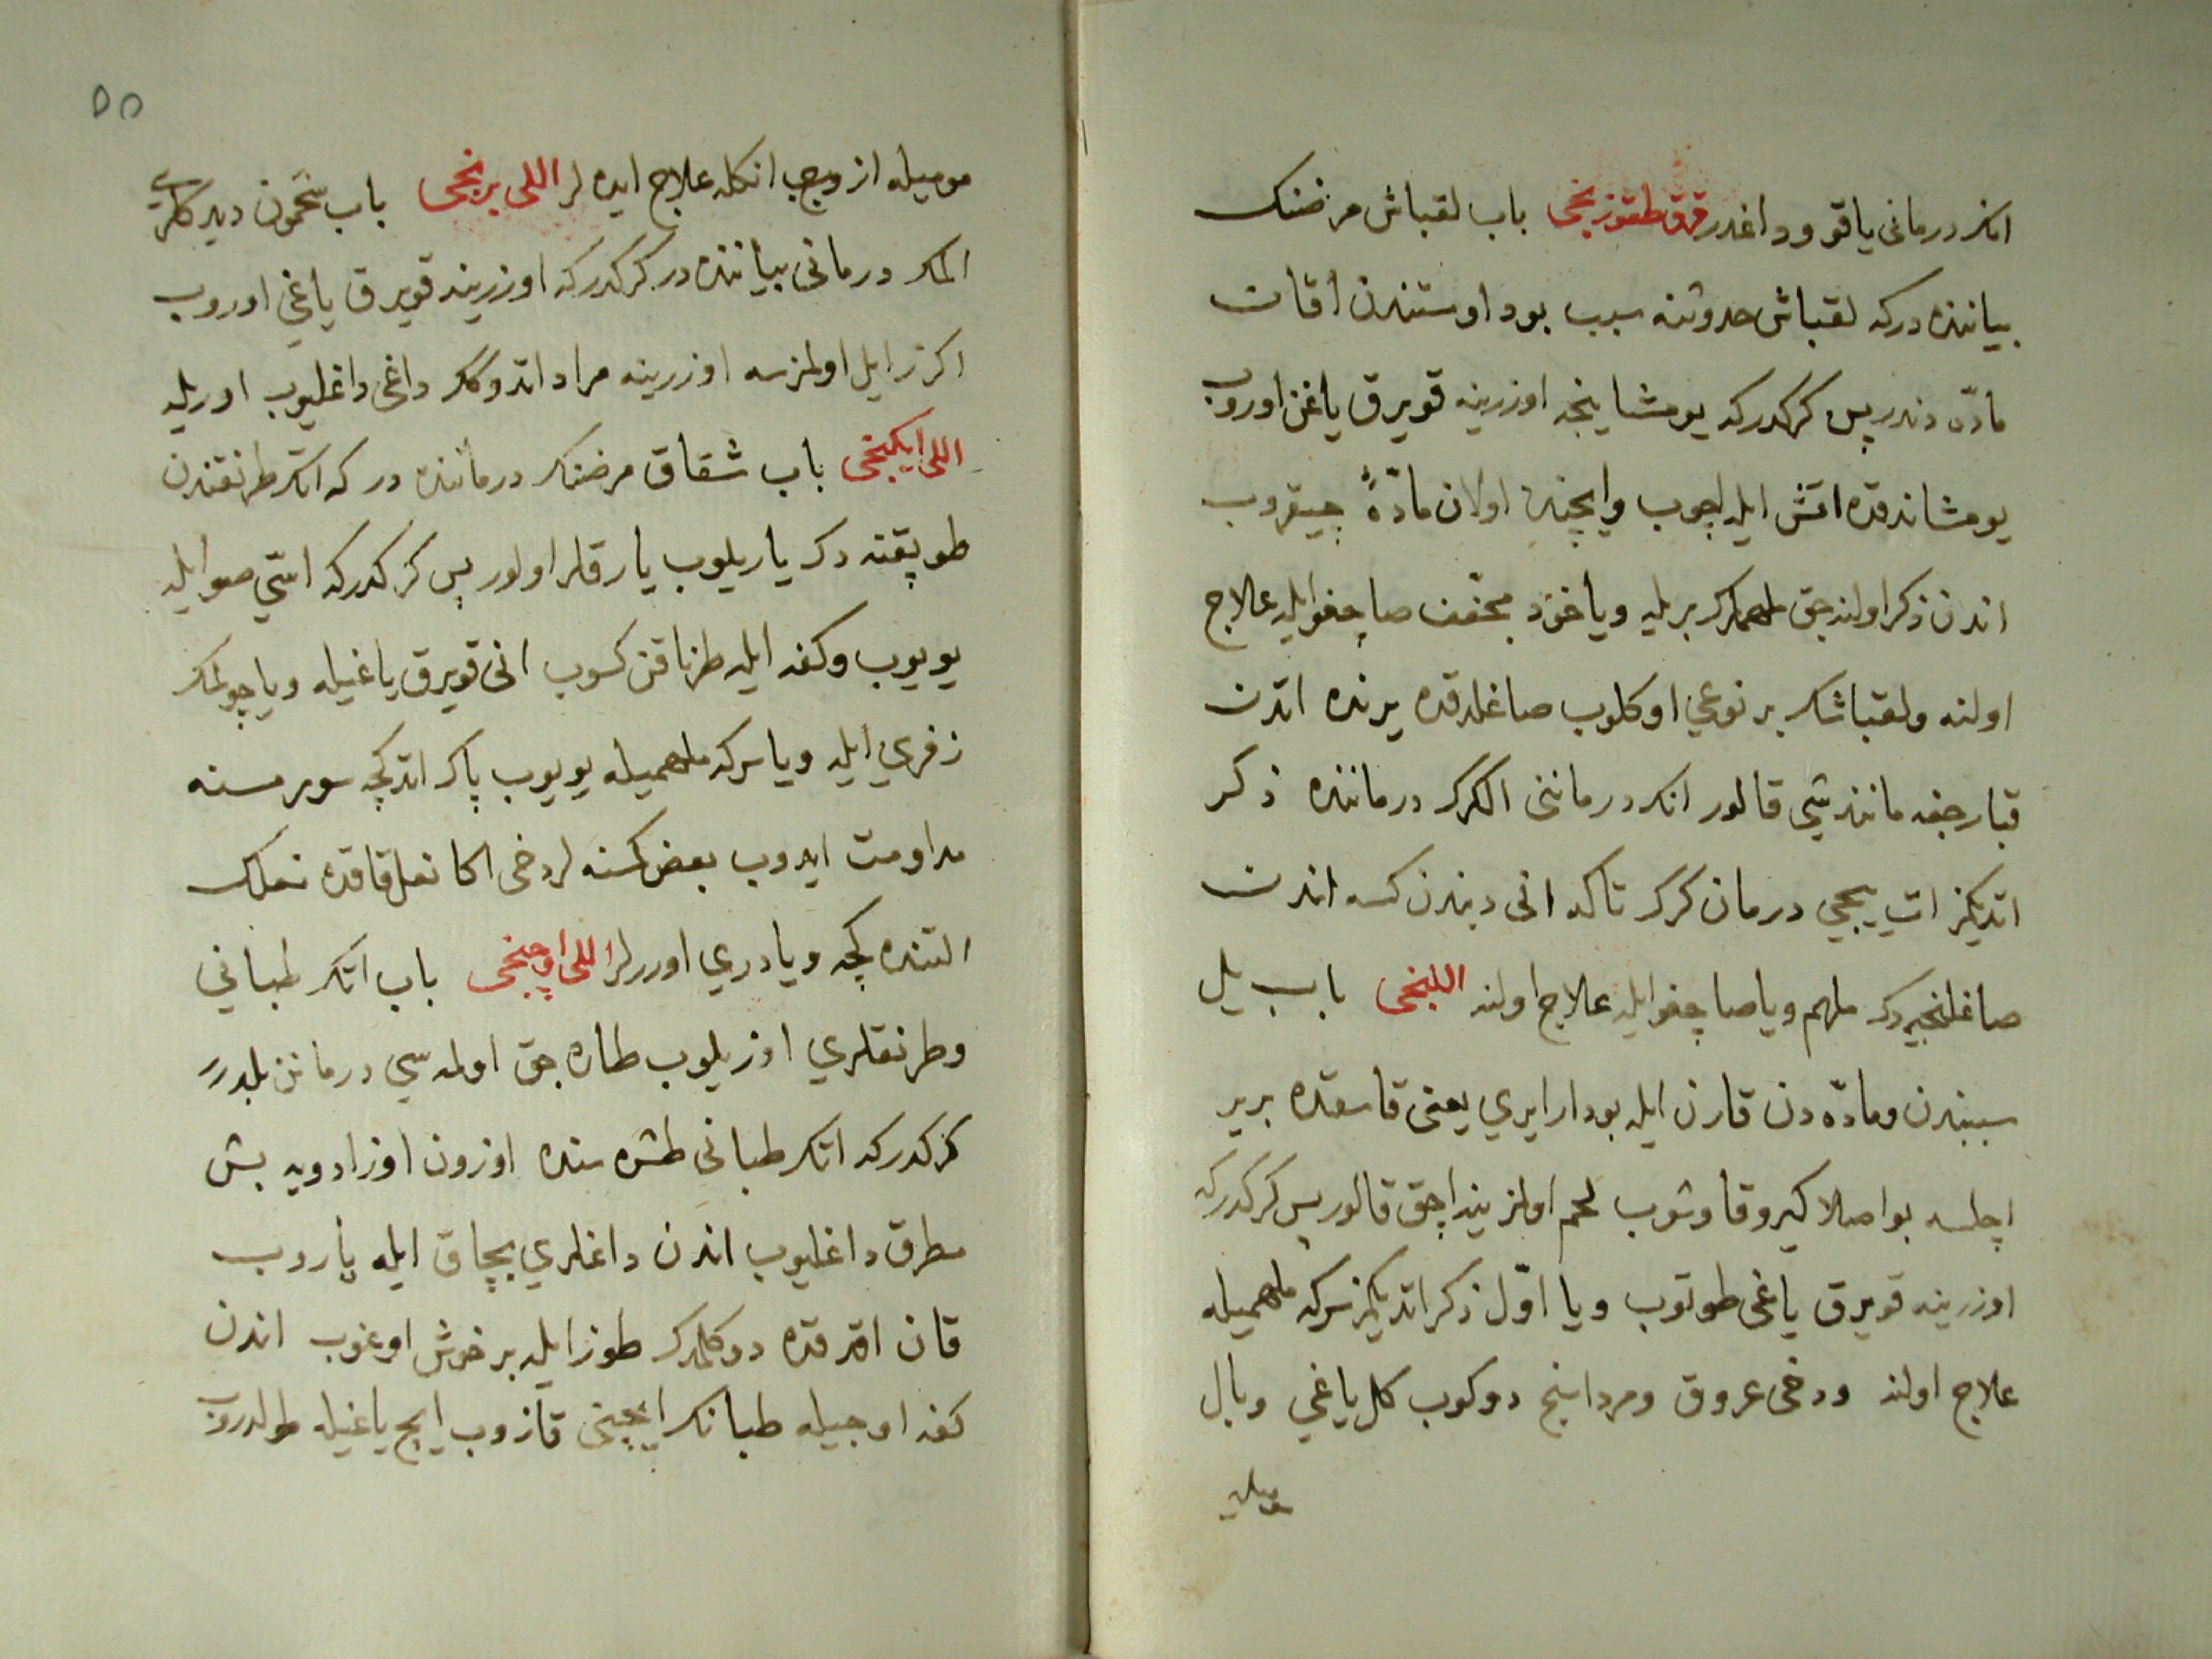 انك درمانى ياقو وداغدر قرق طقوزنجى باب لقباش مرضنك
بياننده دركه لقباش حدوثنه سبب بودر اوستندن اقان
مادّه دندر پس كركدركه يومشاينجه اوزرينه قويرق ياغن اوروب
يومشاندقده اتش ايله اچوب وايچنده اولان مادّۀ چيقروب
اندن ذكر اولنه جق ملهملرك بريله وياخود مجفف صاچغو ايله علاج
اولنه ولقباشك بر نوعي اوكلوب صاغلدقده يرنده اتدن
قبارجغه مانند شي قالور انك درماننى الكرك درماننده ذكر
اتديكمز ات ييجي درمان كرك تاكه انى ديندن كسه اندن
صاغلنجيه دك ملهم ويا صاچغو ايله علاج اولنه اللنجى باب يل
سببندن ومادّه دن قارن ايله بودار ايري يعنى قاسقده بر ير
اچلسه بو اصلا كيرو قاوشوب لحم اولمز ينه اچق قالور پس كركدركه
اوزرينه قويرق ياغى طوتوب ويا اوّل ذكر اتديكمز سركه ملهميله
علاج اولنه ودخى عروق ومرداسنج دوكوب كل ياغي وبال
موميله
٥٥
موميله ازوبج انكله علاج ايده لر اللى برنجى باب شخمون ديدكلري
المك درمانى بياننده در كركدركه اوزرينه قويرق ياغي اوروب
اكر زايل اولمزسه اوزرينه مراد اتدوكك داغى داغليوب اوريله
اللى ايكنجى باب شقاق مرضنك درماننده در كه اتك طرنقندن
طوپقنه دك ياريلوب يارقلر اولور پس كركدركه اسّي صو ايله
يويوب وكفه ايله طرناقن كسوب انى قويرق ياغيله ويا چولمك
زفري ايله ويا سركه ملهميله يويوب پاك اتدكچه سورمسنه
مداومت ايدوب بعض كسنه لر دخى اكا نعل قاقده نعلك
التنده كچه ويا دري اوررلر اللى اوچنجى باب اتك طبانى
وطرنقلري اوزيلوب طاره جق اولمه سي درمانن بلدرر
كركدركه اتك طبانى طشره سنده اوزون اوزادويه بش
مطرق داغليوب اندن داغلري بچاق ايله ياروب
قان اقدقده دوكلمدك طوز ايله بر خوش اوغوب اندن
كفه اوجيله طبانك ايچنى قازوب ايچ ياغيله طولدروب